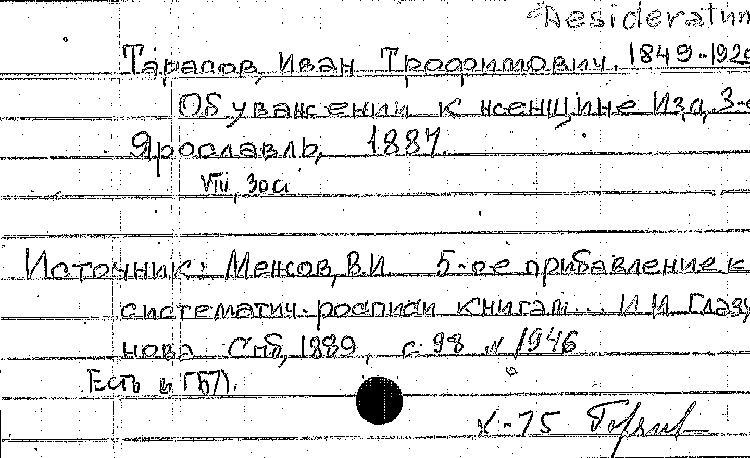 Desideratum
Тарасов, Иван Трофимович. 1849-192
Об уважении к женщине Изд. 3-е
Ярославль, 1887.
VIII, 30 с.
Источник: Межов, В.И. 5-ое прибавление к
систематич. росписи книгам... И.И. Глазу
нова Спб, 1889, с. 98 № 1946
Есть в ГБЛ.
К-75